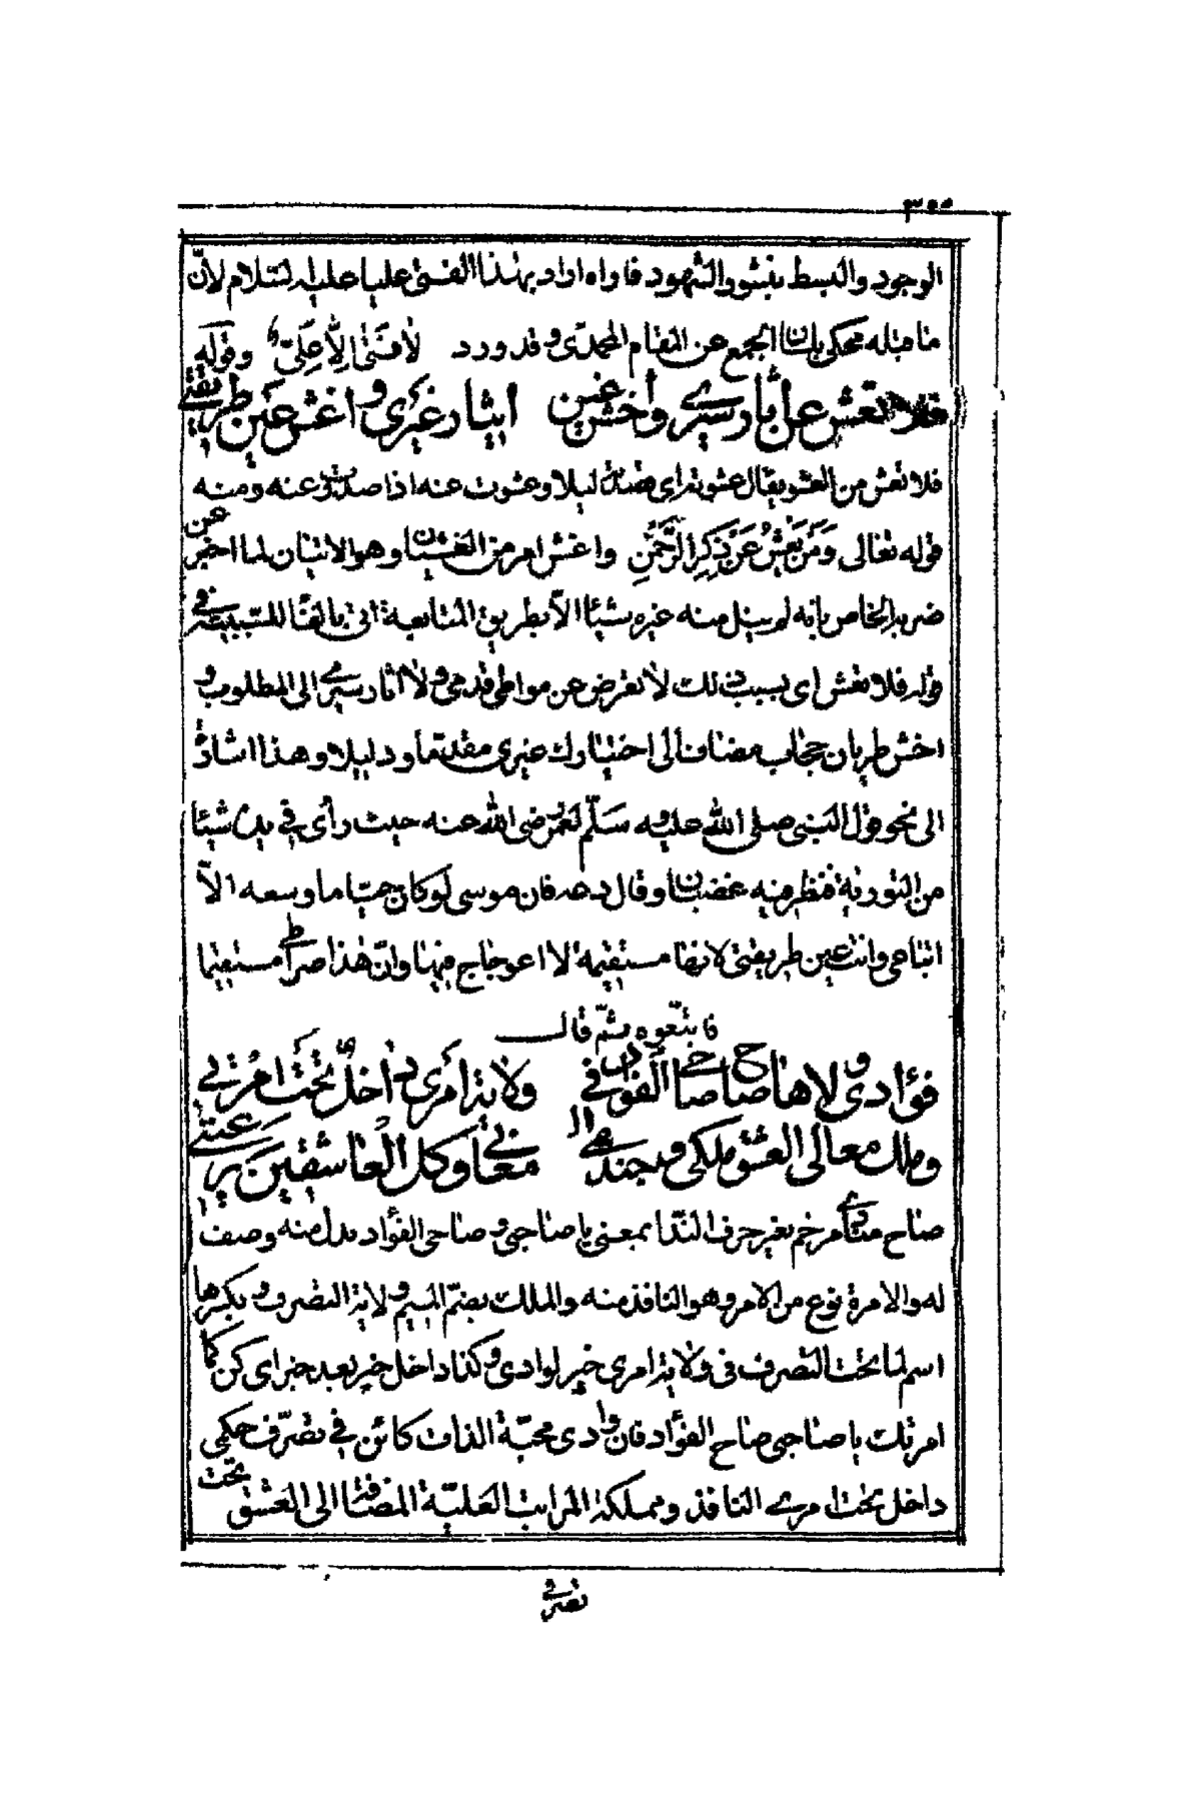 ٣٠٠
الوجود والبسط بنشو والشهود فاواه اراد بهذا الفتى عليا عليه السلام لأنّ
ما قبله محكى بلسان الجمع عن المقام المحمدى وقد ورد لا فتى الا علىّ وقوله
فلا تعش عن آثار سيرى واخش غين ايثار غيرى واغش عين طريقتى
فلا تعش من العشو يقال عشوته اى قصدته ليلا وعشوت عنه اذا صددت عنه ومنه
قوله تعالى وَمَن يَعْشُ عَنْ ذِكْرِ الرَّحْمٰنِ واغش امر من الغشيان وهو الاتيان لما اخبر عن
ضربه الخاص بانه لم ينل منه غيره شيئا الا بطريق المتابعة اتى بالفاء للسببية فى
قوله فلا تعش اى بسبب ذلك لا تعرض عن مواطى قدمى ولا آثار سيرى الى المطلوب و
اخش طريان حجاب مضاف الى اختيارك غيرى مقدّما ودليلا وهذا اشارة
الى نحو قول النبى صلى الله عليه وسلّم لعمر رضى الله عنه حيث رأى فى يده شيئا
من التورية فنظر فيه غضبان وقال فان موسى لو كان حيّا ما وسعه الاّ
اتباعى وائت عين طريقتى لانها مستقيمة لا اعوجاج فيها وانّ هذا صراطى مستقيما
فاتبعوه ثمّ قال
فؤادى ولاها صاح صاحى الفؤاد فى ولاية امرى داخل تحت امرتى
وملك معالى العشق ملكى وجندى ال معانى وكل العاشقين رعيتى
صاح منادى مرخم بغير حرف الندا بمعنى يا صاحبى وصاحى الفؤاد بدل منه وصف
له والامرة نوع من الامر وهو النافذ منه والملك بضمّ الميم ولاية التصرف وبكسرها
اسم لما تحت التصرف فى ولاية امرى خبر لوادى وكذا داخل خبر بعد خبر اى كن كما
امرتك يا صاحبى صاح الفؤاد فان وادى محبّة الذات كائن فى تصرّف حكمى
داخل تحت امرى النافذ ومملكة المراتب العليّة المضافة الى العشق تحت
تصرفى